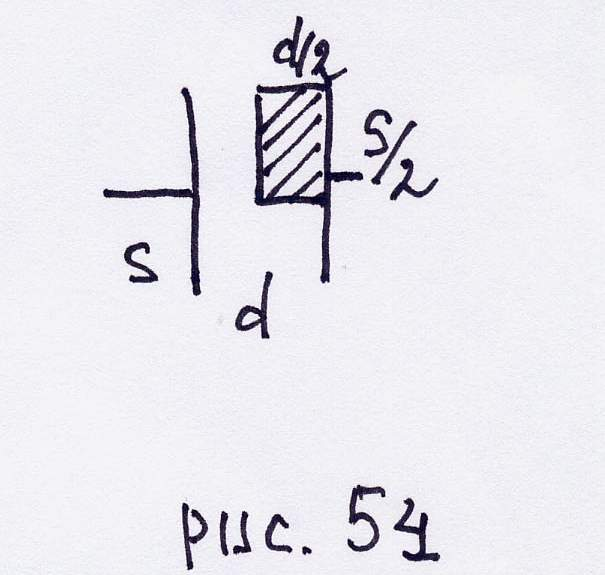 d/2
S/2
S
d
рис. 54